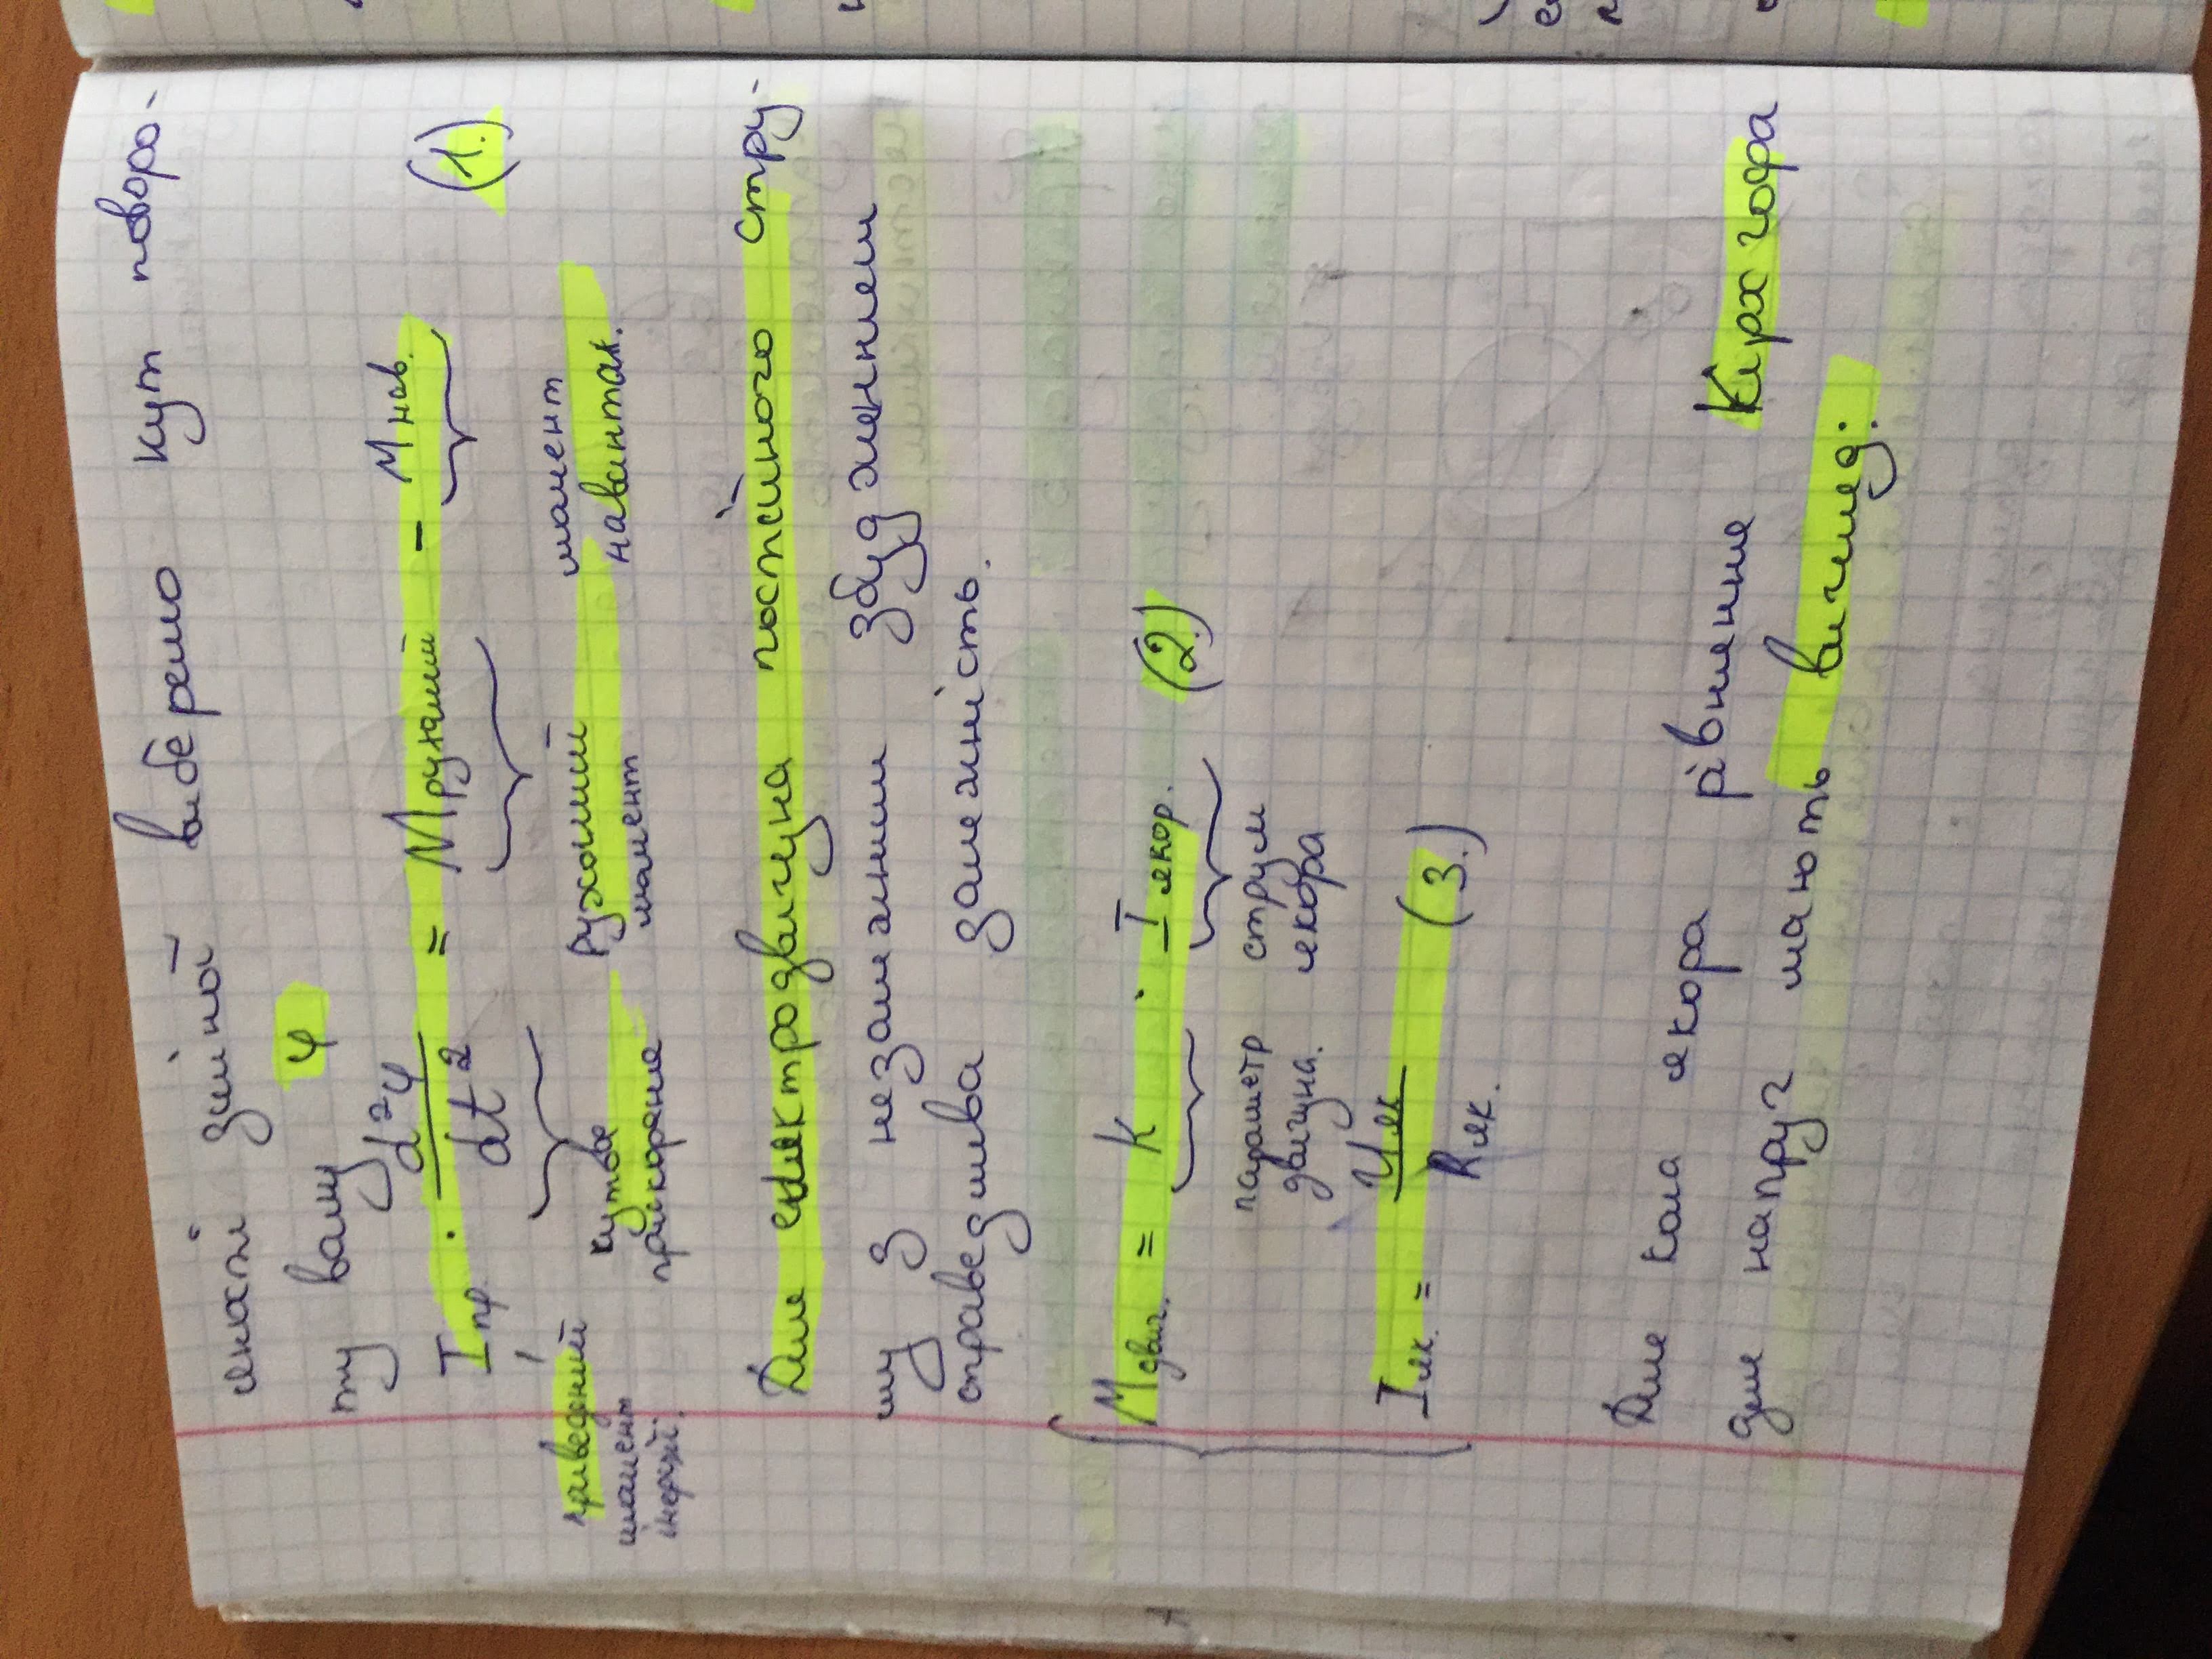 якості змінної виберемо кут поворо-
ту валу φ
Iпр. · d²φ/dt² = Mрухомий - Mнав. (1.)
приведений момент інерції.
кутове прискорення
рухомий момент
момент навантаж.
Для електродвигуна постійного стру-
му з незалежним збудженням
справедлива залежність.
Mдвиг. = K · Iякор. (2.)
параметр двигуна.
струм якора
Iяк. = Uяк / Rяк. (3.)
Для кола якора рівняння Кірхгофа
для напруг мають вигляд: